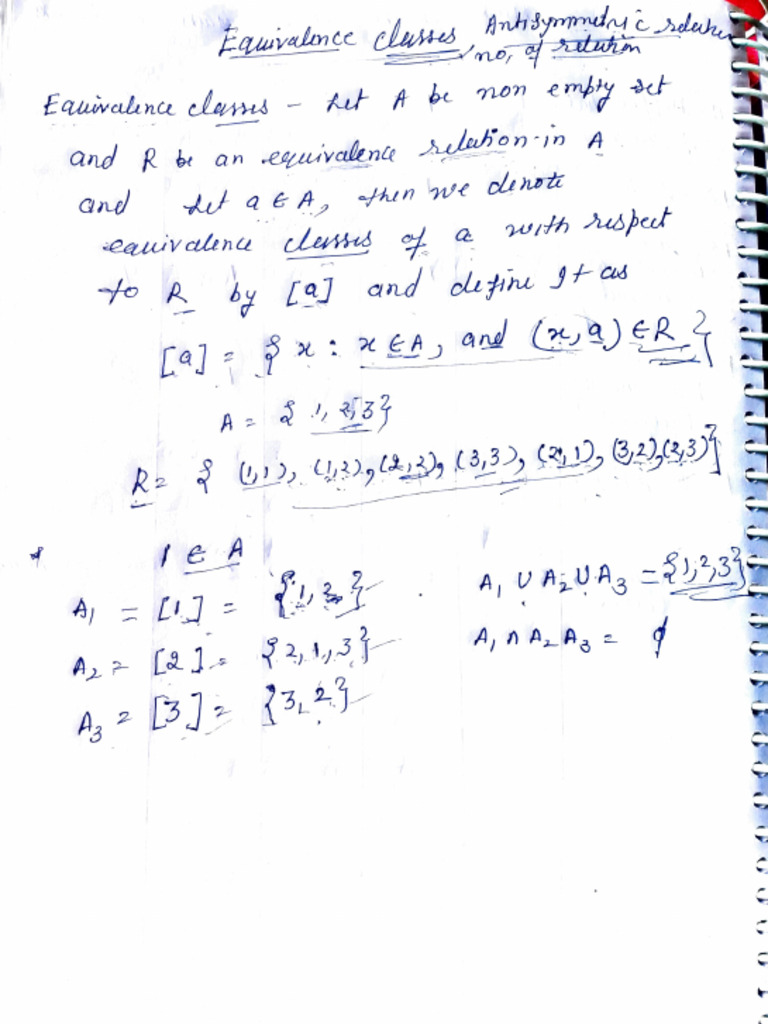 Equivalence classes, Antisymmetric relation
no, of relation
Equivalence classes - Let A be non empty set
and R be an equivalence relation in A
and Let a ∈ A, then we denote
equivalence classes of a with respect
to R by [a] and define It as
[a] = { x : x ∈ A, and (x, a) ∈ R }
A = { 1, 2, 3 }
R = { (1,1), (1,2), (2,2), (3,3), (2,1), (3,2), (2,3) }
1 ∈ A
A1 = [1] = {1, 2}
A2 = [2] = {2, 1, 3}
A3 = [3] = {3, 2}
A1 ∪ A2 ∪ A3 = {1,2,3}
A1 ∩ A2 A3 = ϕ